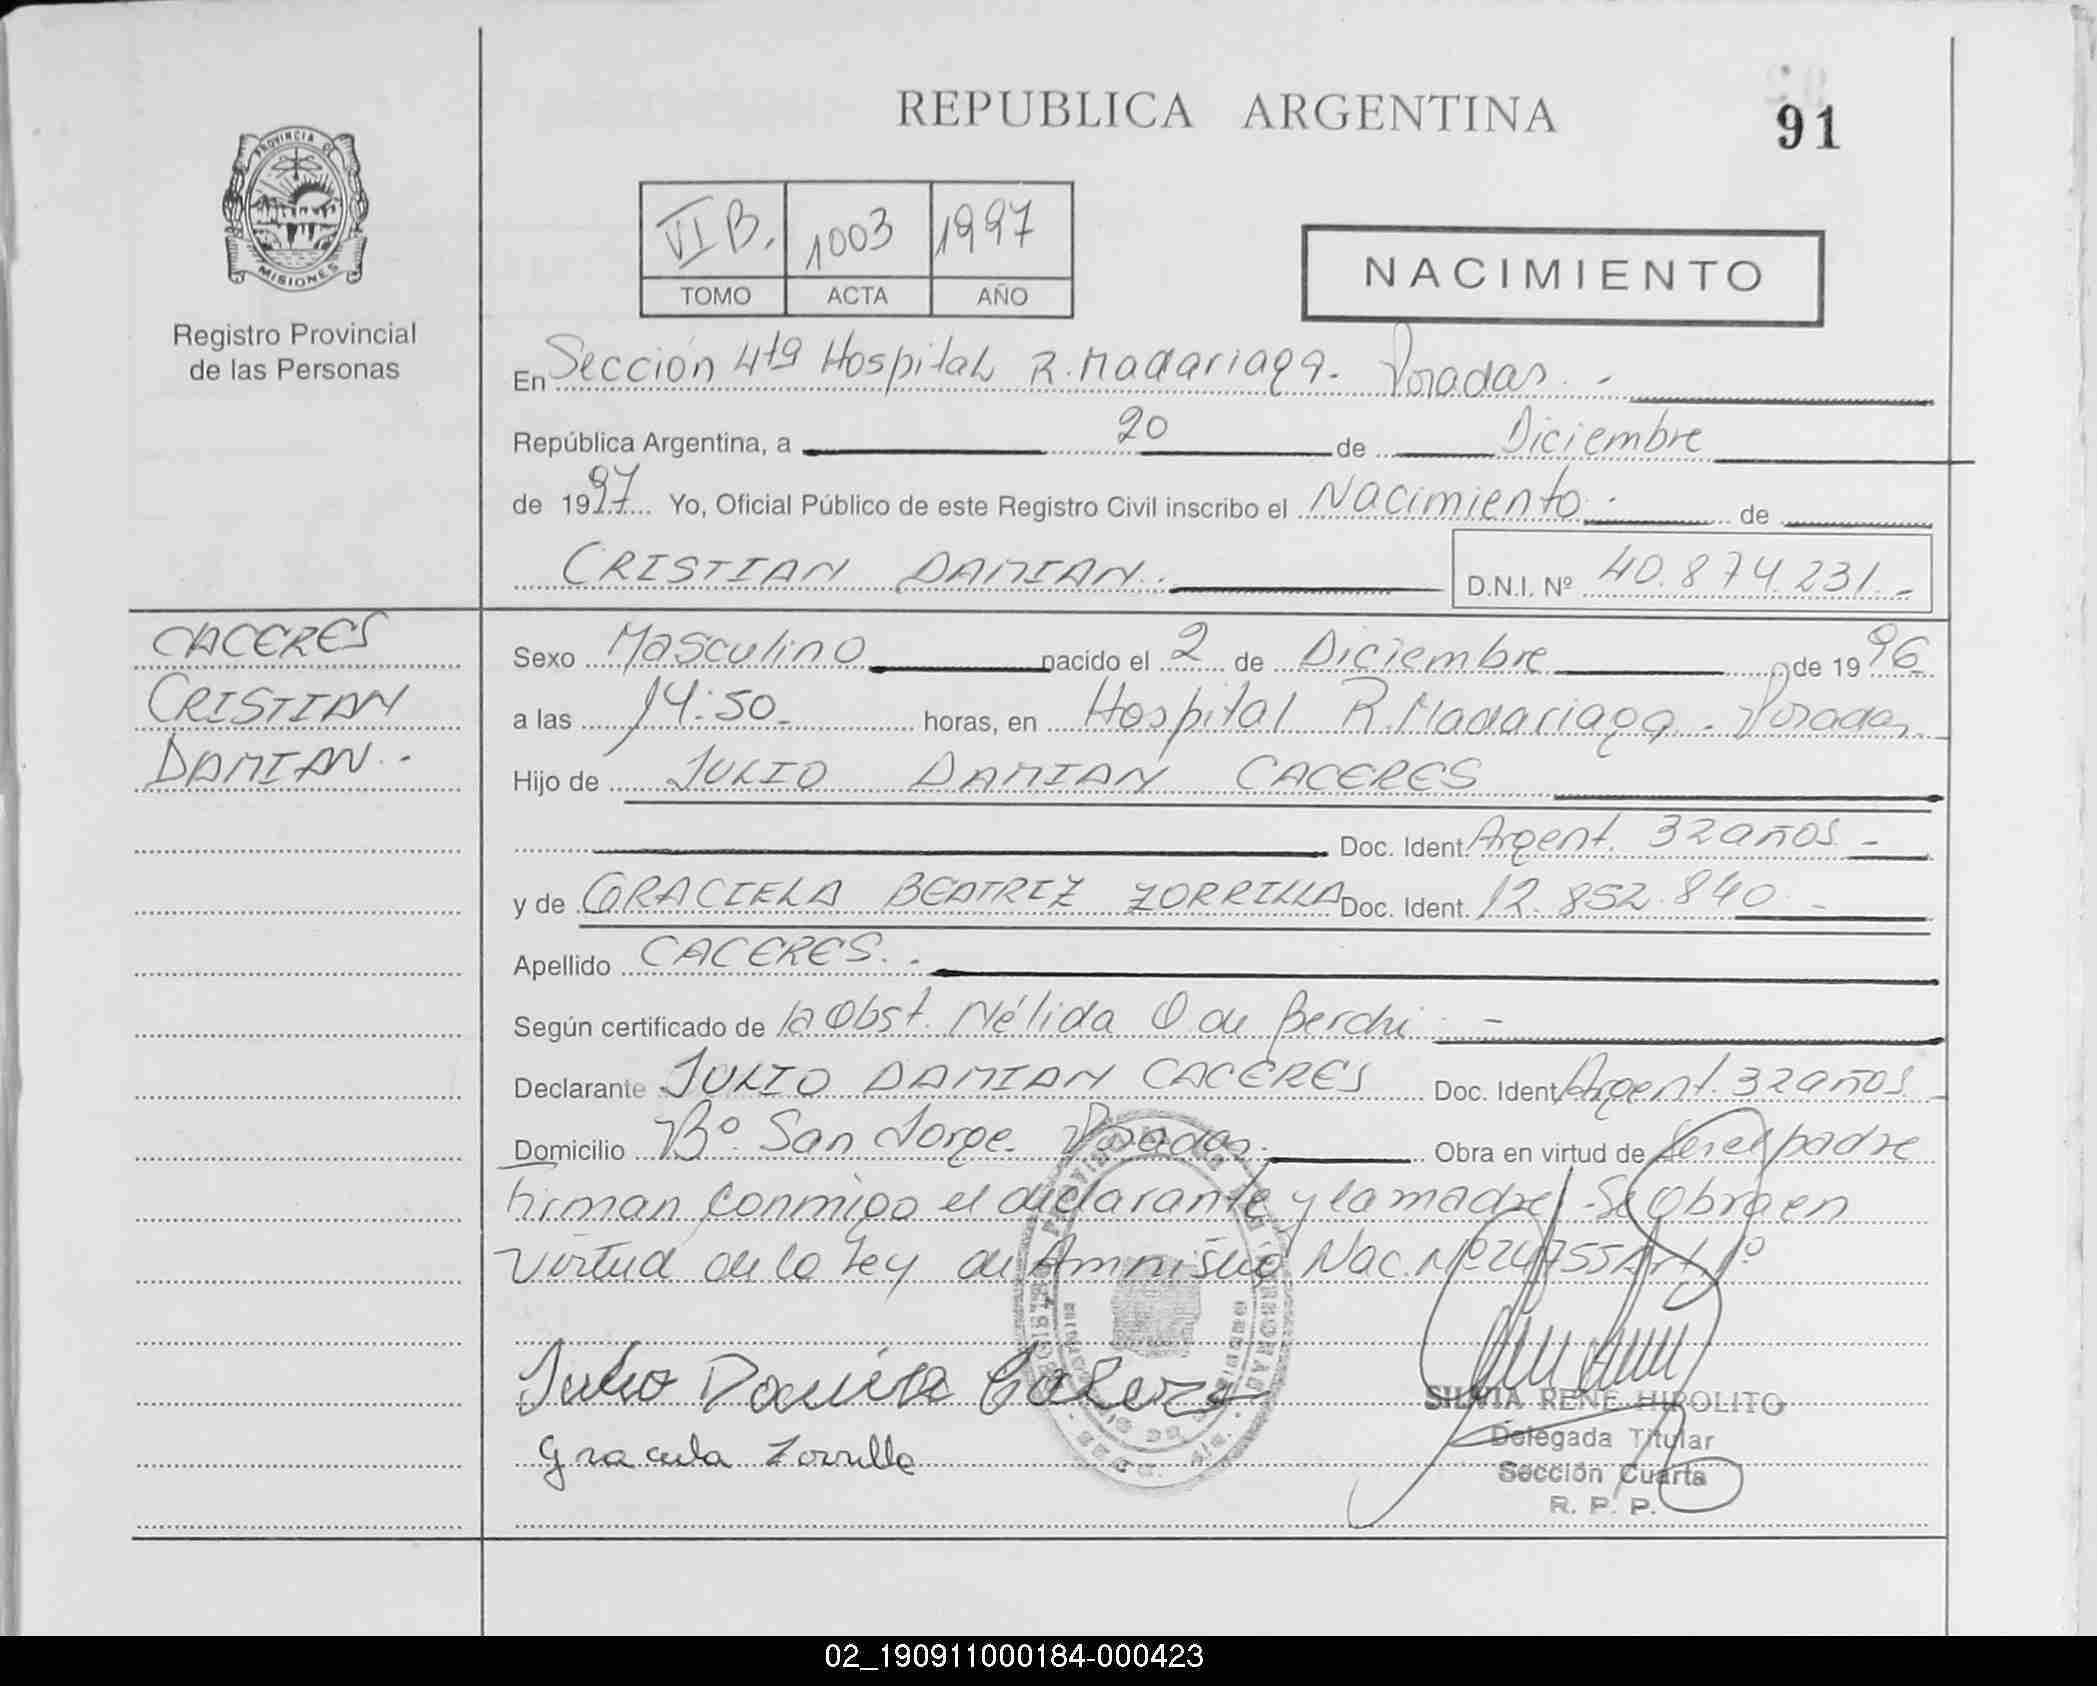 REPUBLICA ARGENTINA
91
PROVINCIA DE
MISIONES
Registro Provincial
de las Personas
VI B. 1003 1997
TOMO ACTA AÑO
NACIMIENTO
En Sección 4ta Hospital R. Madariaga. Posadas. -
República Argentina, a 20 de Diciembre
de 1997 Yo, Oficial Público de este Registro Civil inscribo el Nacimiento. de
CRISTIAN DAMIAN. D.N.I. Nº 40.874.231.-
CACERES
CRISTIAN
DAMIAN.-
Sexo Masculino nacido el 2 de Diciembre de 1996
a las 14:50 horas, en Hospital R. Madariaga. Posadas.
Hijo de JULIO DAMIAN CACERES
Doc. Ident. Argent. 32 años -
y de GRACIELA BEATRIZ ZORRILLA Doc. Ident. 12.852.840 -
Apellido CACERES. -
Según certificado de la Obst. Nélida O de Berchi -
Declarante JULIO DAMIAN CACERES Doc. Ident. Argent. 32 años -
Domicilio Bº San Jorge. Posadas. Obra en virtud de ser el padre
firman conmigo el declarante y la madre - Se obra en
virtud de la Ley de Amnistia Nac. Nº 24755 Art 1º
Julio Caceres
Graciela Zorrilla
SILVIA RENE HIPOLITO
Delegada Titular
Sección Cuarta
R. P. P.
02_190911000184-000423